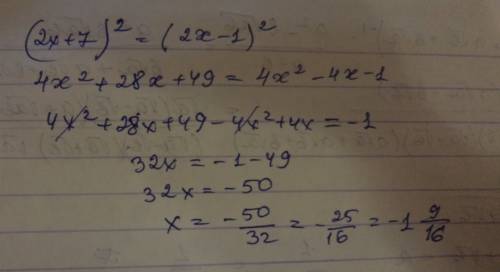 (2x+7)² = (2x-1)²
4x² + 28x + 49 = 4x² - 4x - 1
4x² + 28x + 49 - 4x² + 4x = -1
32x = -1 - 49
32x = -50
x = -50/32 = -25/16 = -1 9/16